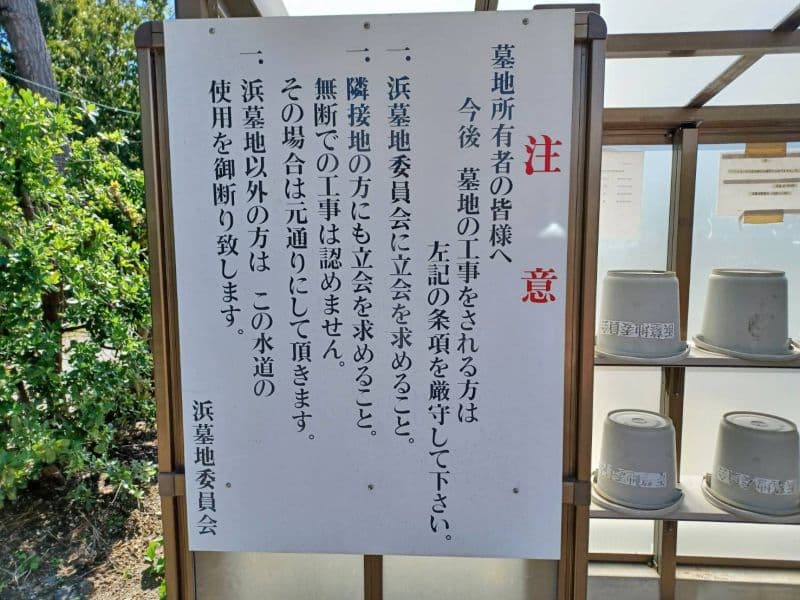 注意
墓地所有者の皆様へ
今後　墓地の工事をされる方は
左記の条項を厳守して下さい。
一．浜墓地委員会に立会を求めること。
一．隣接地の方にも立会を求めること。
無断での工事は認めません。
その場合は元通りにして頂きます。
一．浜墓地以外の方は　この水道の
使用を御断り致します。
浜墓地委員会
浜墓地委員会